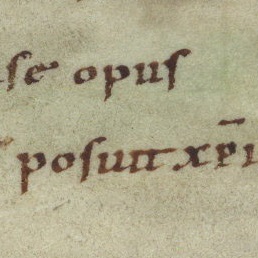 se opus
posuit xp̄i